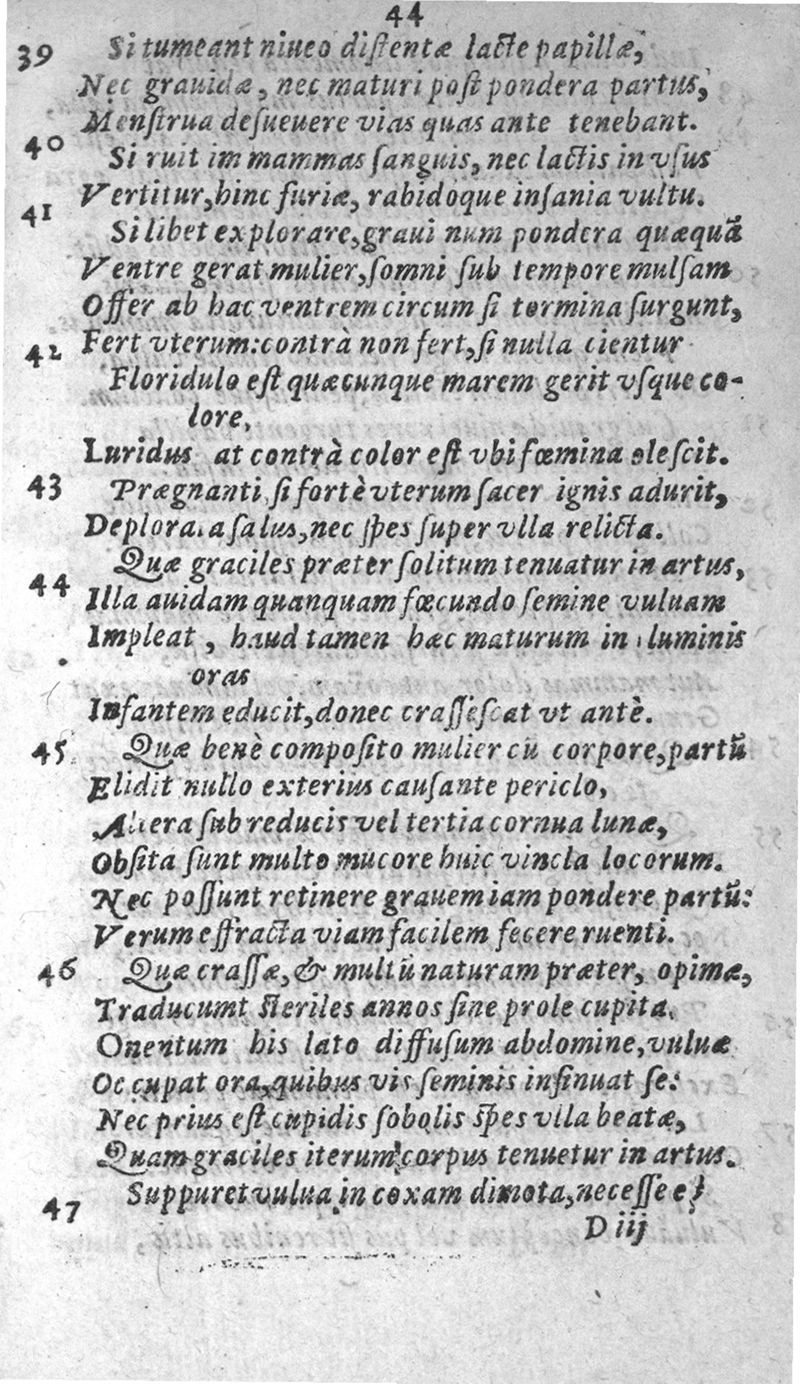 44
39 Si tumeant niueo distentæ lacte papillæ,
Nec grauidæ, nec maturi post pondera partus,
Menstrua desueuere vias quas ante tenebant.
40 Si ruit im mammas sanguis, nec lactis in vsus
Vertitur, hinc furiæ, rabidoque insania vultu.
41 Si libet explorare, graui num pondera quæquã
Ventre gerat mulier, somni sub tempore mulsam
Offer ab hac ventrem circum si tormina surgunt,
Fert vterum: contrà non fert, si nulla cientur
42 Floridulo est quæcunque marem gerit vsque co-
lore,
Luridus at contrà color est vbi fœmina olescit.
43 Prægnanti si fortè vterum sacer ignis adurit,
Deplorata salus, nec spes super vlla relicta.
44 Quæ graciles præter solitum tenuatur in artus,
Illa auidam quanquam fœcundo semine vuluam
Impleat, haud tamen hæc maturum in luminis
oras
Infantem educit, donec crassescat vt antè.
45 Quæ benè composito mulier cũ corpore, partũ
Elidit nullo exterius causante periclo,
Altera sub reducis vel tertia cornua lunæ,
Obsita sunt multo mucore huic vincla locorum.
Nec possunt retinere grauem iam pondere partũ:
Verum effracta viam facilem fecere ruenti.
46 Quæ crassæ, & multũ naturam præter, opimæ,
Traducumt steriles annos sine prole cupita.
Omentum his lato diffusum abdomine, vuluæ
Occupat ora, quibus vis seminis insinuat se:
Nec prius est cupidis sobolis spes vlla beatæ,
Quam graciles iterum corpus tenuetur in artus.
47 Suppuret vulua in coxam dimota, necesse e
D iij